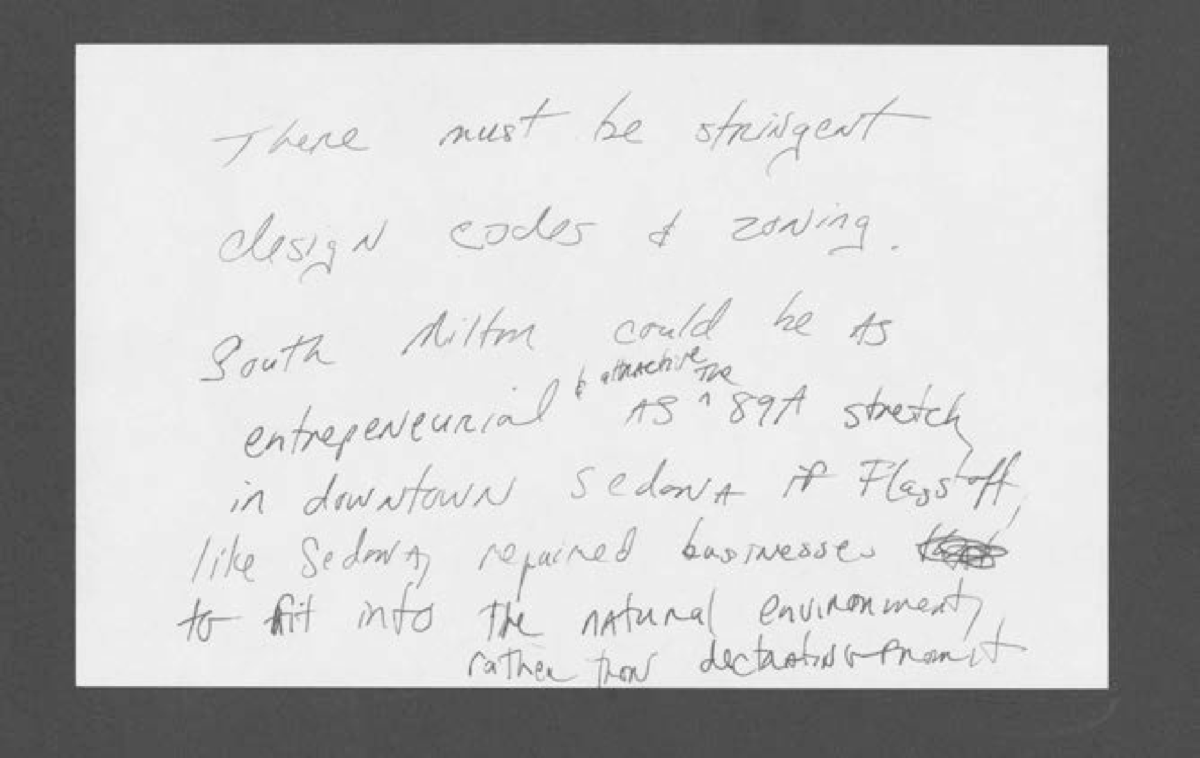 There must be stringent
design codes & zoning.
South Milton could be AS
entrepeneurial & attractive AS ^ The 89A stretch,
in downtown Sedona if Flagstaff,
like Sedona, required businesses
to fit into the natural environment,
rather than